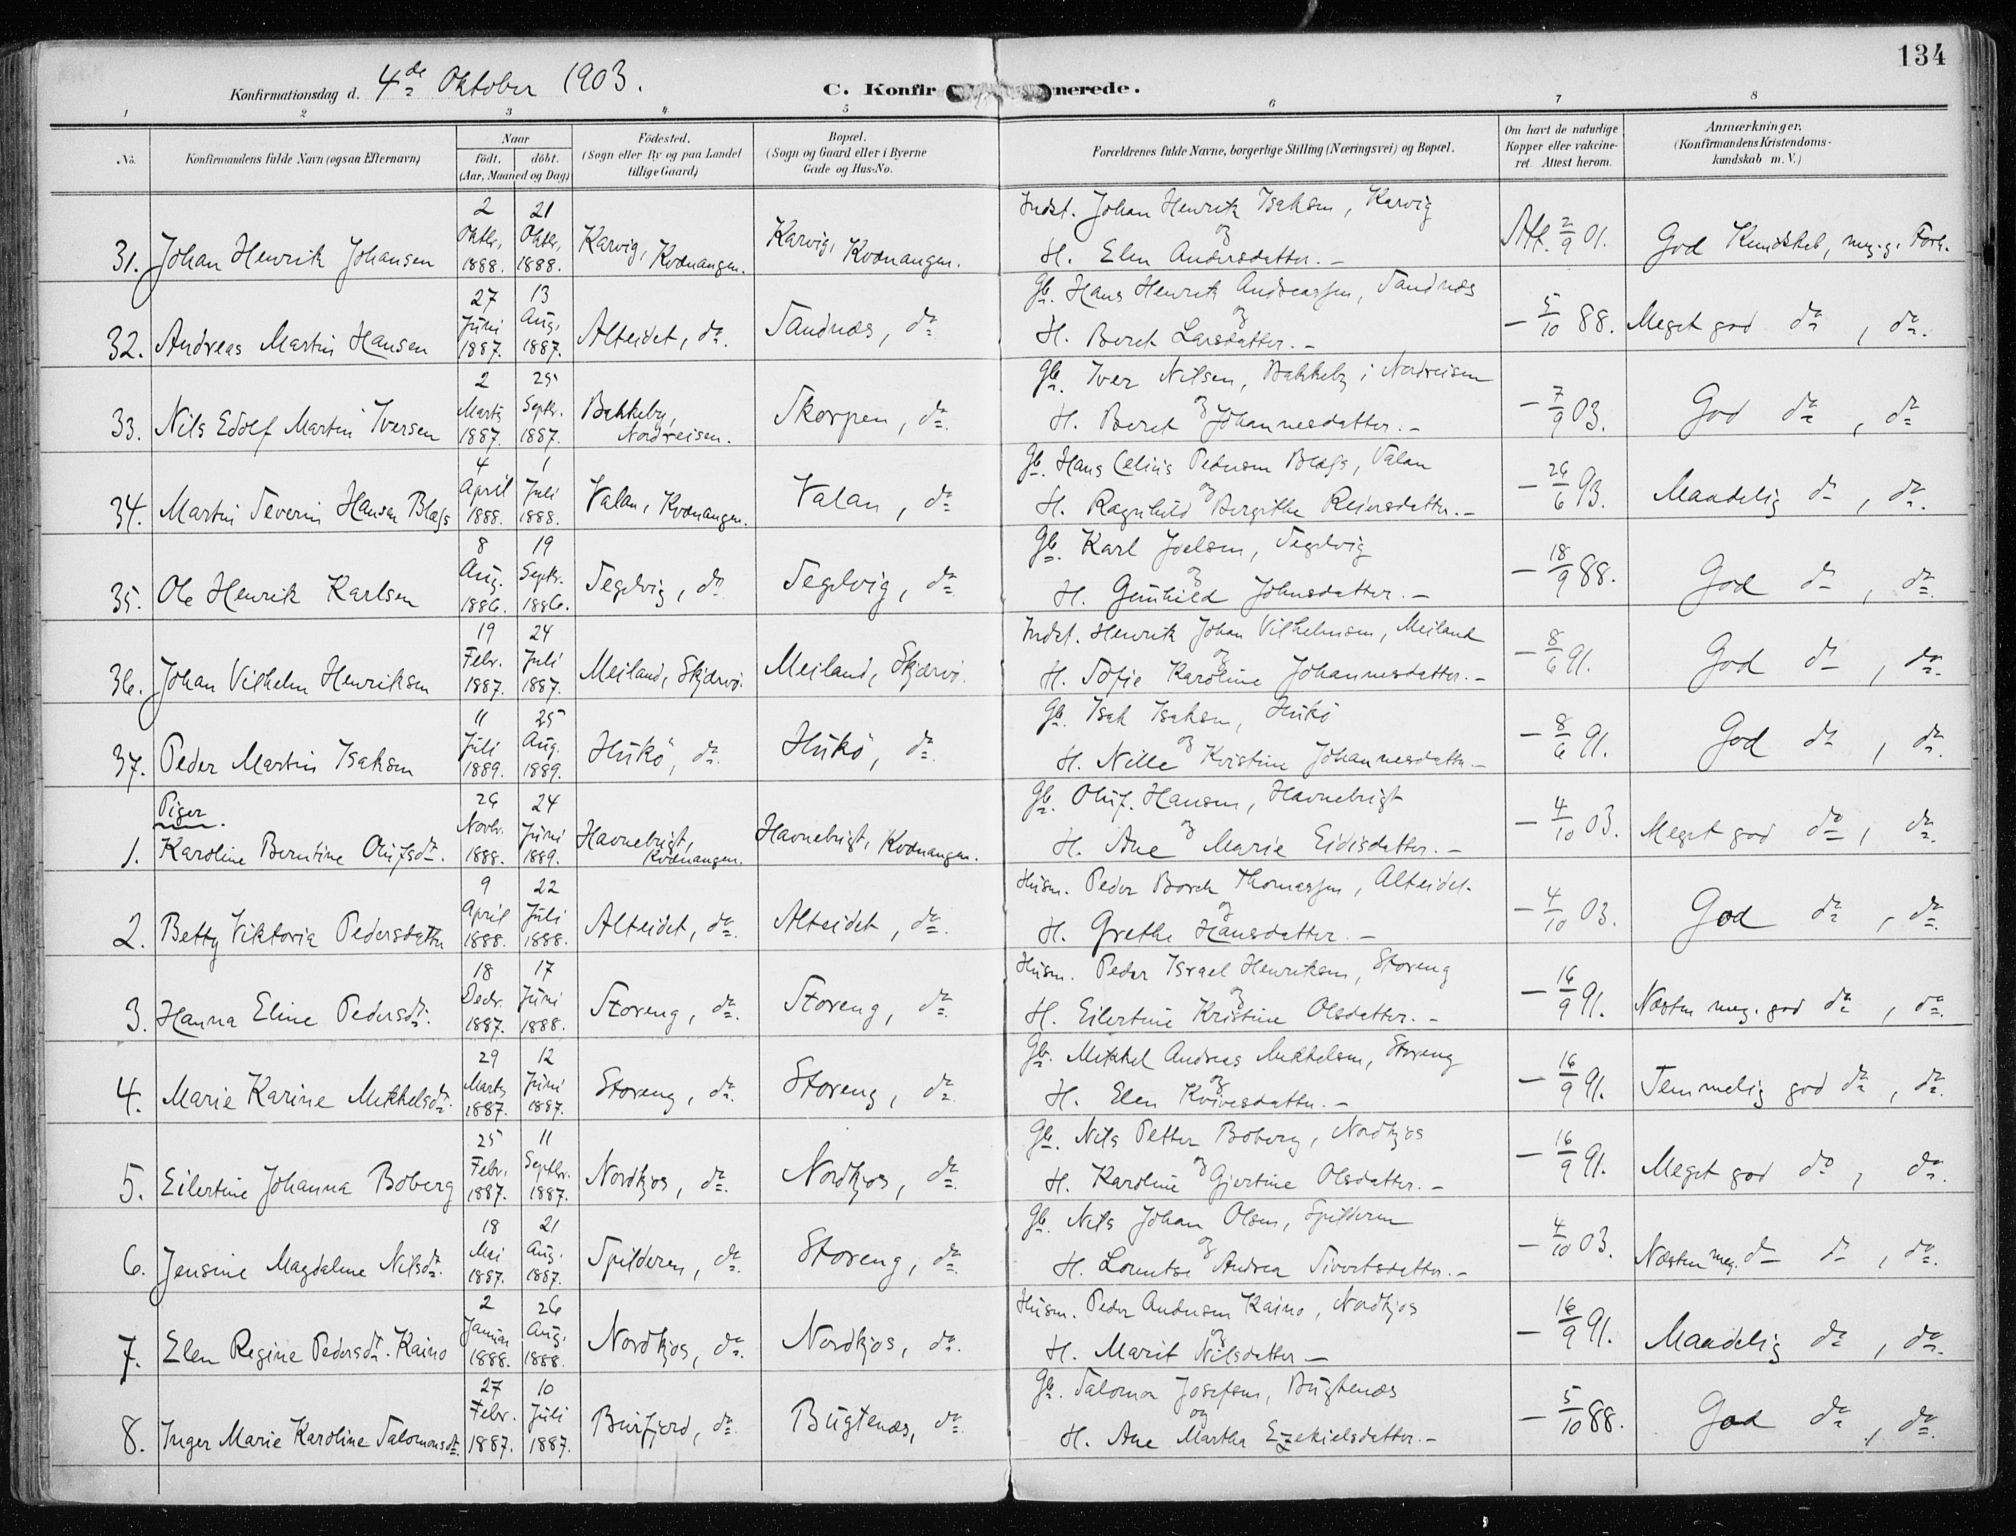 134
Konfirmationsdag d. 4de Oktober 1903.
C. Konfir merede.
1 2 3 4 5 6 7 8
No. Konfirmandens fulde Navn (ogsaa Efternavn) Naar født. døbt. (Aar, Maaned og Dag) Födested. (Sogn eller By og paa Landet tillige Gaard) Bopæl. (Sogn og Gaard eller i Byerne Gade og Hus-No. Forældrenes fulde Navne, borgerlige Stilling (Næringsvei) og Bopæl. Om havt de naturlige Kopper eller vakcineret. Attest herom. Anmærkninger. (Konfirmandens Kristendomskundskab m. V.)
31. Johan Henrik Johansen 2 Oktbr. 1888. 21 Oktbr. 1888. Karvig, Kvænangen. Karvig, Kvænangen. Indst. Johan Henrik Isaksen, Karvig og H. Elen Andersdatter. – Att. 2/9 01. God Kundskab, meg. g. Forh.
32. Andreas Martin Hansen 27 Juni 1887. 13 Aug. 1887. Alteidet, do. Sandnæs, do. Gb. Hans Henrik Andreassen, Sandnæs og H. Beret Larsdatter. – – 5/10 88. Meget god do, do.
33. Nils Edolf Martin Iversen 2 Marts 1887. 25 Septr. 1887. Bakkeby, Nordreisen. Skorpen, do. Gb. Iver Nilsen, Bakkeby i Nordreisen og H. Beret Johannesdatter. – – 7/9 03. God do, do
34. Martin Severin Hansen Blæss 4 April 1888. 1 Juli 1888. Valan, Kvænangen. Valan, do. Gb. Hans Celius Pedersen Blæss, Valan og H. Ragnhild Bergithe Reiersdatter. – – 26/6 93. Maadelig do, do.
35. Ole Henrik Karlsen 8 Aug. 1886. 19 Septr. 1886. Segelvig, do. Segelvig, do. Gb. Karl Joelsen, Segelvig og H. Gunhild Johnsdatter. – – 18/9 88. God do, do.
36. Johan Vilhelm Henriksen 19 Febr. 1887. 24 Juli 1887. Meiland, Skjærvø. Meiland, Skjærvø. Indst. Henrik Johan Vilhelmsen, Meiland og H. Sofie Karoline Johannesdatter. – – 8/6 91. God do, do.
37. Peder Martin Isaksen 11 Juli 1889. 25 Aug. 1889. Hukø, do. Hukø, do. Gb. Isak Isaksen, Hukø og H. Nille Kristine Johannesdatter. – – 8/6 91. God do, do.
Piger.
1. Karoline Berntine Olufsdtr. 26 Novbr. 1888. 24 Juni 1889. Havnebugt, Kvænangen. Havnebugt, Kvænangen. Gb. Oluf Hansen, Havnebugt og H. Ane Marie Eidisdatter. – – 4/10 03. Meget god do, do.
2. Betty Viktoria Pedersdatter 9 April 1888. 22 Juli 1888. Alteidet, do. Alteidet, do. Husm. Peder Borch Thomassen, Alteidet. og H. Grethe Hansdatter. – – 4/10 03. God do, do.
3. Hanna Eline Pedersdtr. 18 Decbr. 1887. 17 Juni 1888. Storeng, do. Storeng, do. Husm. Peder Israel Henriksen, Storeng og H. Eilertine Kristine Olsdatter. – – 16/9 91. Næsten meg. god do, do.
4. Marie Karine Mikkelsdtr. 29 Marts 1887. 12 Juni 1887. Storeng, do. Storeng, do. Gb. Mikkel Andreas Mikkelsen, Storeng og H. Elen Kvivesdatter. – – 16/9 91. Temmelig god do, do.
5. Eilertine Johanna Boberg 25 Febr. 1887. 11 Septbr. 1887. Nordkjos, do. Nordkjos, do. Gb. Nils Petter Boberg, Nordkjos og H. Karoline Gjertine Olsdatter. – – 16/9 91. Meget god do, do.
6. Jensine Magdalene Nilsdtr. 18 Mai 1887. 21 Aug. 1887. Spilderen, do. Storeng, do. Gb. Nils Johan Olsen, Spilderen og H. Lorentse Andrea Sivertsdatter. – – 4/10 03. Næsten meg. do do, do.
7. Elen Regine Pedersdtr. Kaino 2 Januar 1888. 26 Aug. 1888. Nordkjos, do. Nordkjos, do. Husm. Peder Andersen Kaino, Nordkjos og H. Marit Nilsdatter – – 16/9 91. Maadelig do, do.
8. Inger Marie Karoline Salomonsdtr. 27 Febr. 1887. 10 Juli 1887. Burfjord, do. Bugtenæs, do. Gb. Salomon Josefsen, Bugtenæs og H. Ane Martha Ezekielsdatter. – – 5/10 88. God do, do.